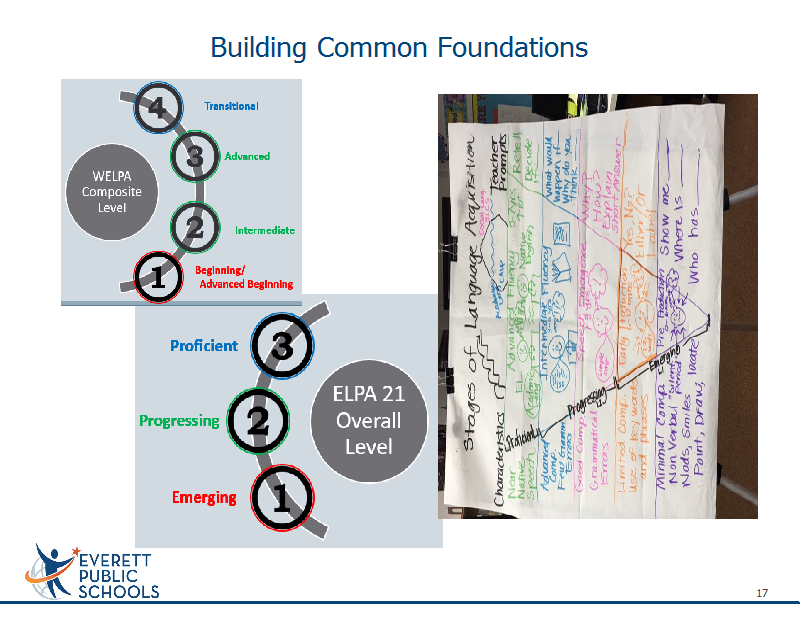 Building Common Foundations
4
Transitional
3
Advanced
WELPA
Composite
Level
2
Intermediate
1
Beginning/
Advanced Beginning
3
Proficient
2
Progressing
1
Emerging
ELPA 21
Overall
Level
Stages of Language Acquisition
Characteristics
Teacher
Prompts
Near
Native
Speech
Advanced Fluency
5-7yrs
Retell
Decide
if
Proficient
Advanced
Comp.
Few Gramm
Errors
Intermediate Fluency
What would
happen if
Why do you
think
Progressing
Good Comp
Grammatical
Errors
Speech Emergence
Why?
How?
Explain
Short Answer
Limited Comp.
use of key words
and phrases
Early Production
Yes No?
Either/Or
Emerging
Minimal Comp.
Non Verbal
Nods, Smiles
Point, Draw, locate
Pre Production
"Silent
Period"
Show me
Where is
Who has
EVERETT
PUBLIC
SCHOOLS
17